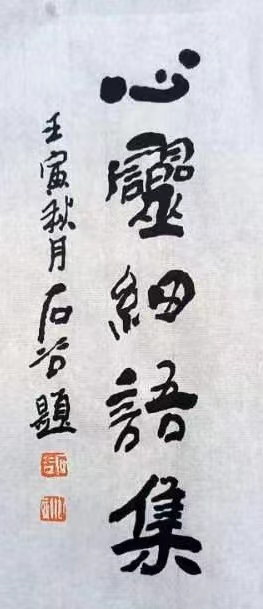 心靈細語集
壬寅秋月石谷題